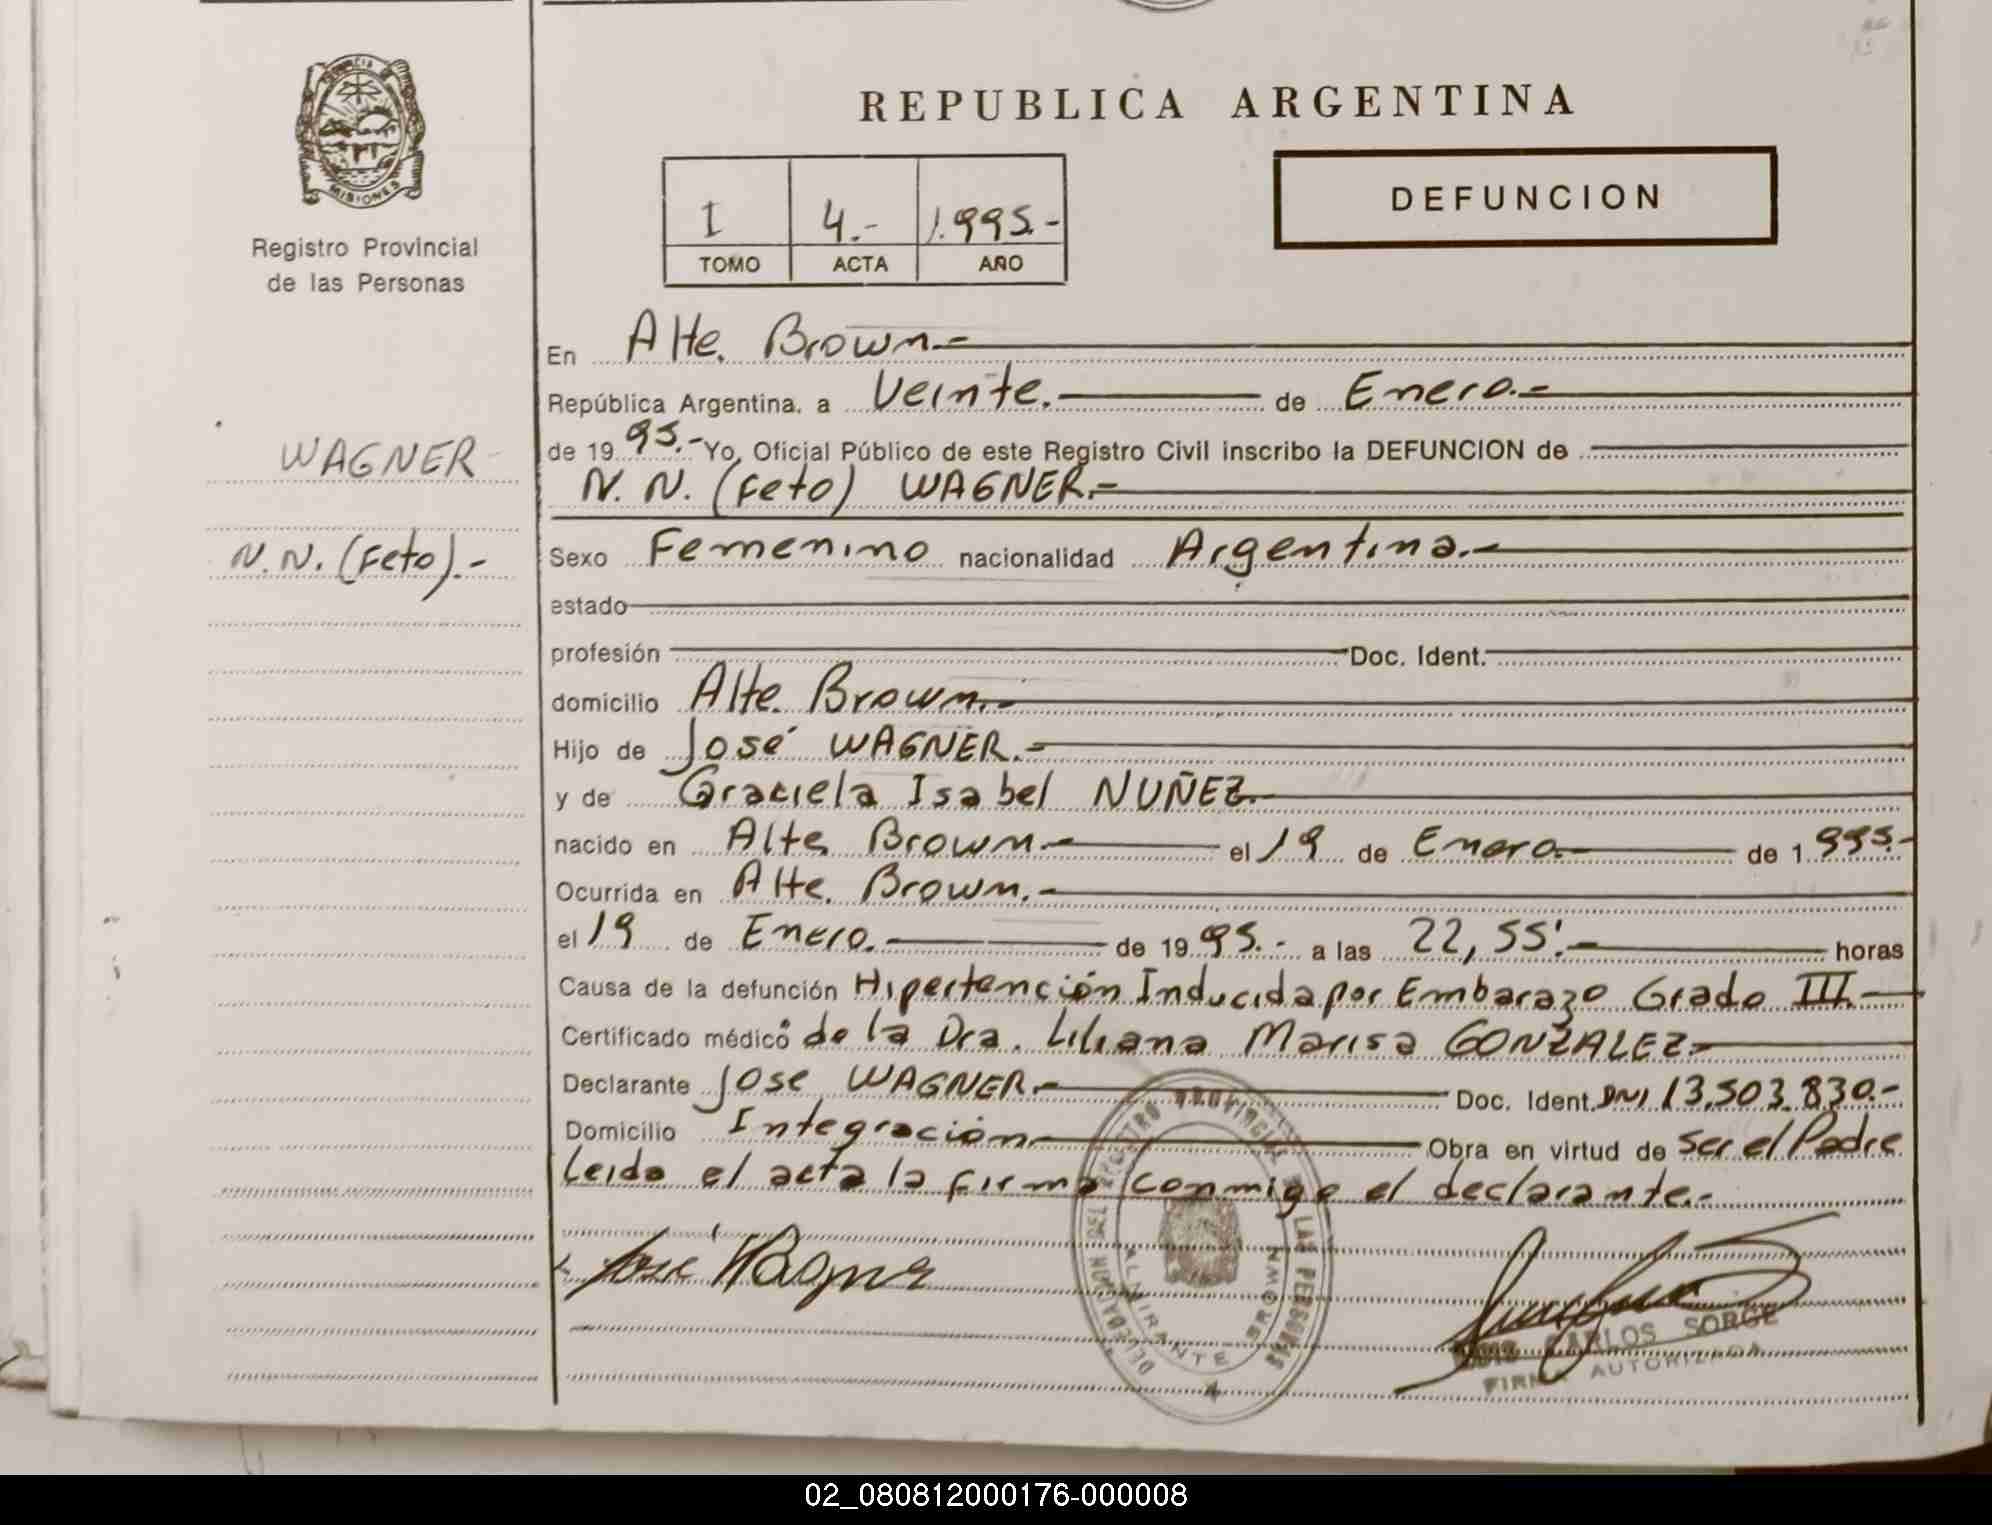 PROVINCIA DE
MISIONES
Registro Provincial
de las Personas
REPUBLICA ARGENTINA
DEFUNCION
I 4.- 1.995.-
TOMO ACTA AÑO
WAGNER
N.N. (Feto).-
En Alte. Brown.-
República Argentina, a Veinte. de Enero.-
de 1995.- Yo, Oficial Público de este Registro Civil inscribo la DEFUNCION de
N. N. (Feto) WAGNER.-
Sexo Femenino nacionalidad Argentina.-
estado
profesión Doc. Ident.
domicilio Alte. Brown.-
Hijo de José WAGNER.-
y de Graciela Isabel NUÑEZ.-
nacido en Alte Brown.- el 19 de Enero.- de 1995.-
Ocurrida en Alte. Brown.-
el 19 de Enero.- de 1995.- a las 22,55'.- horas
Causa de la defunción Hipertención Inducida por Embarazo Grado III.-
Certificado médico de la Dra. Liliana Marisa GONZALEZ.-
Declarante José WAGNER.- Doc. Ident. DNI 13.503.830.-
Domicilio Integración.- Obra en virtud de ser el Padre
Leida el acta la firma conmigo el declarante.-
José Wagner
DELEGACION DEL REGISTRO PROVINCIAL DE LAS PERSONAS
ALMIRANTE BROWN
CARLOS SORGE
FIRMA AUTORIZADA
02_080812000176-000008